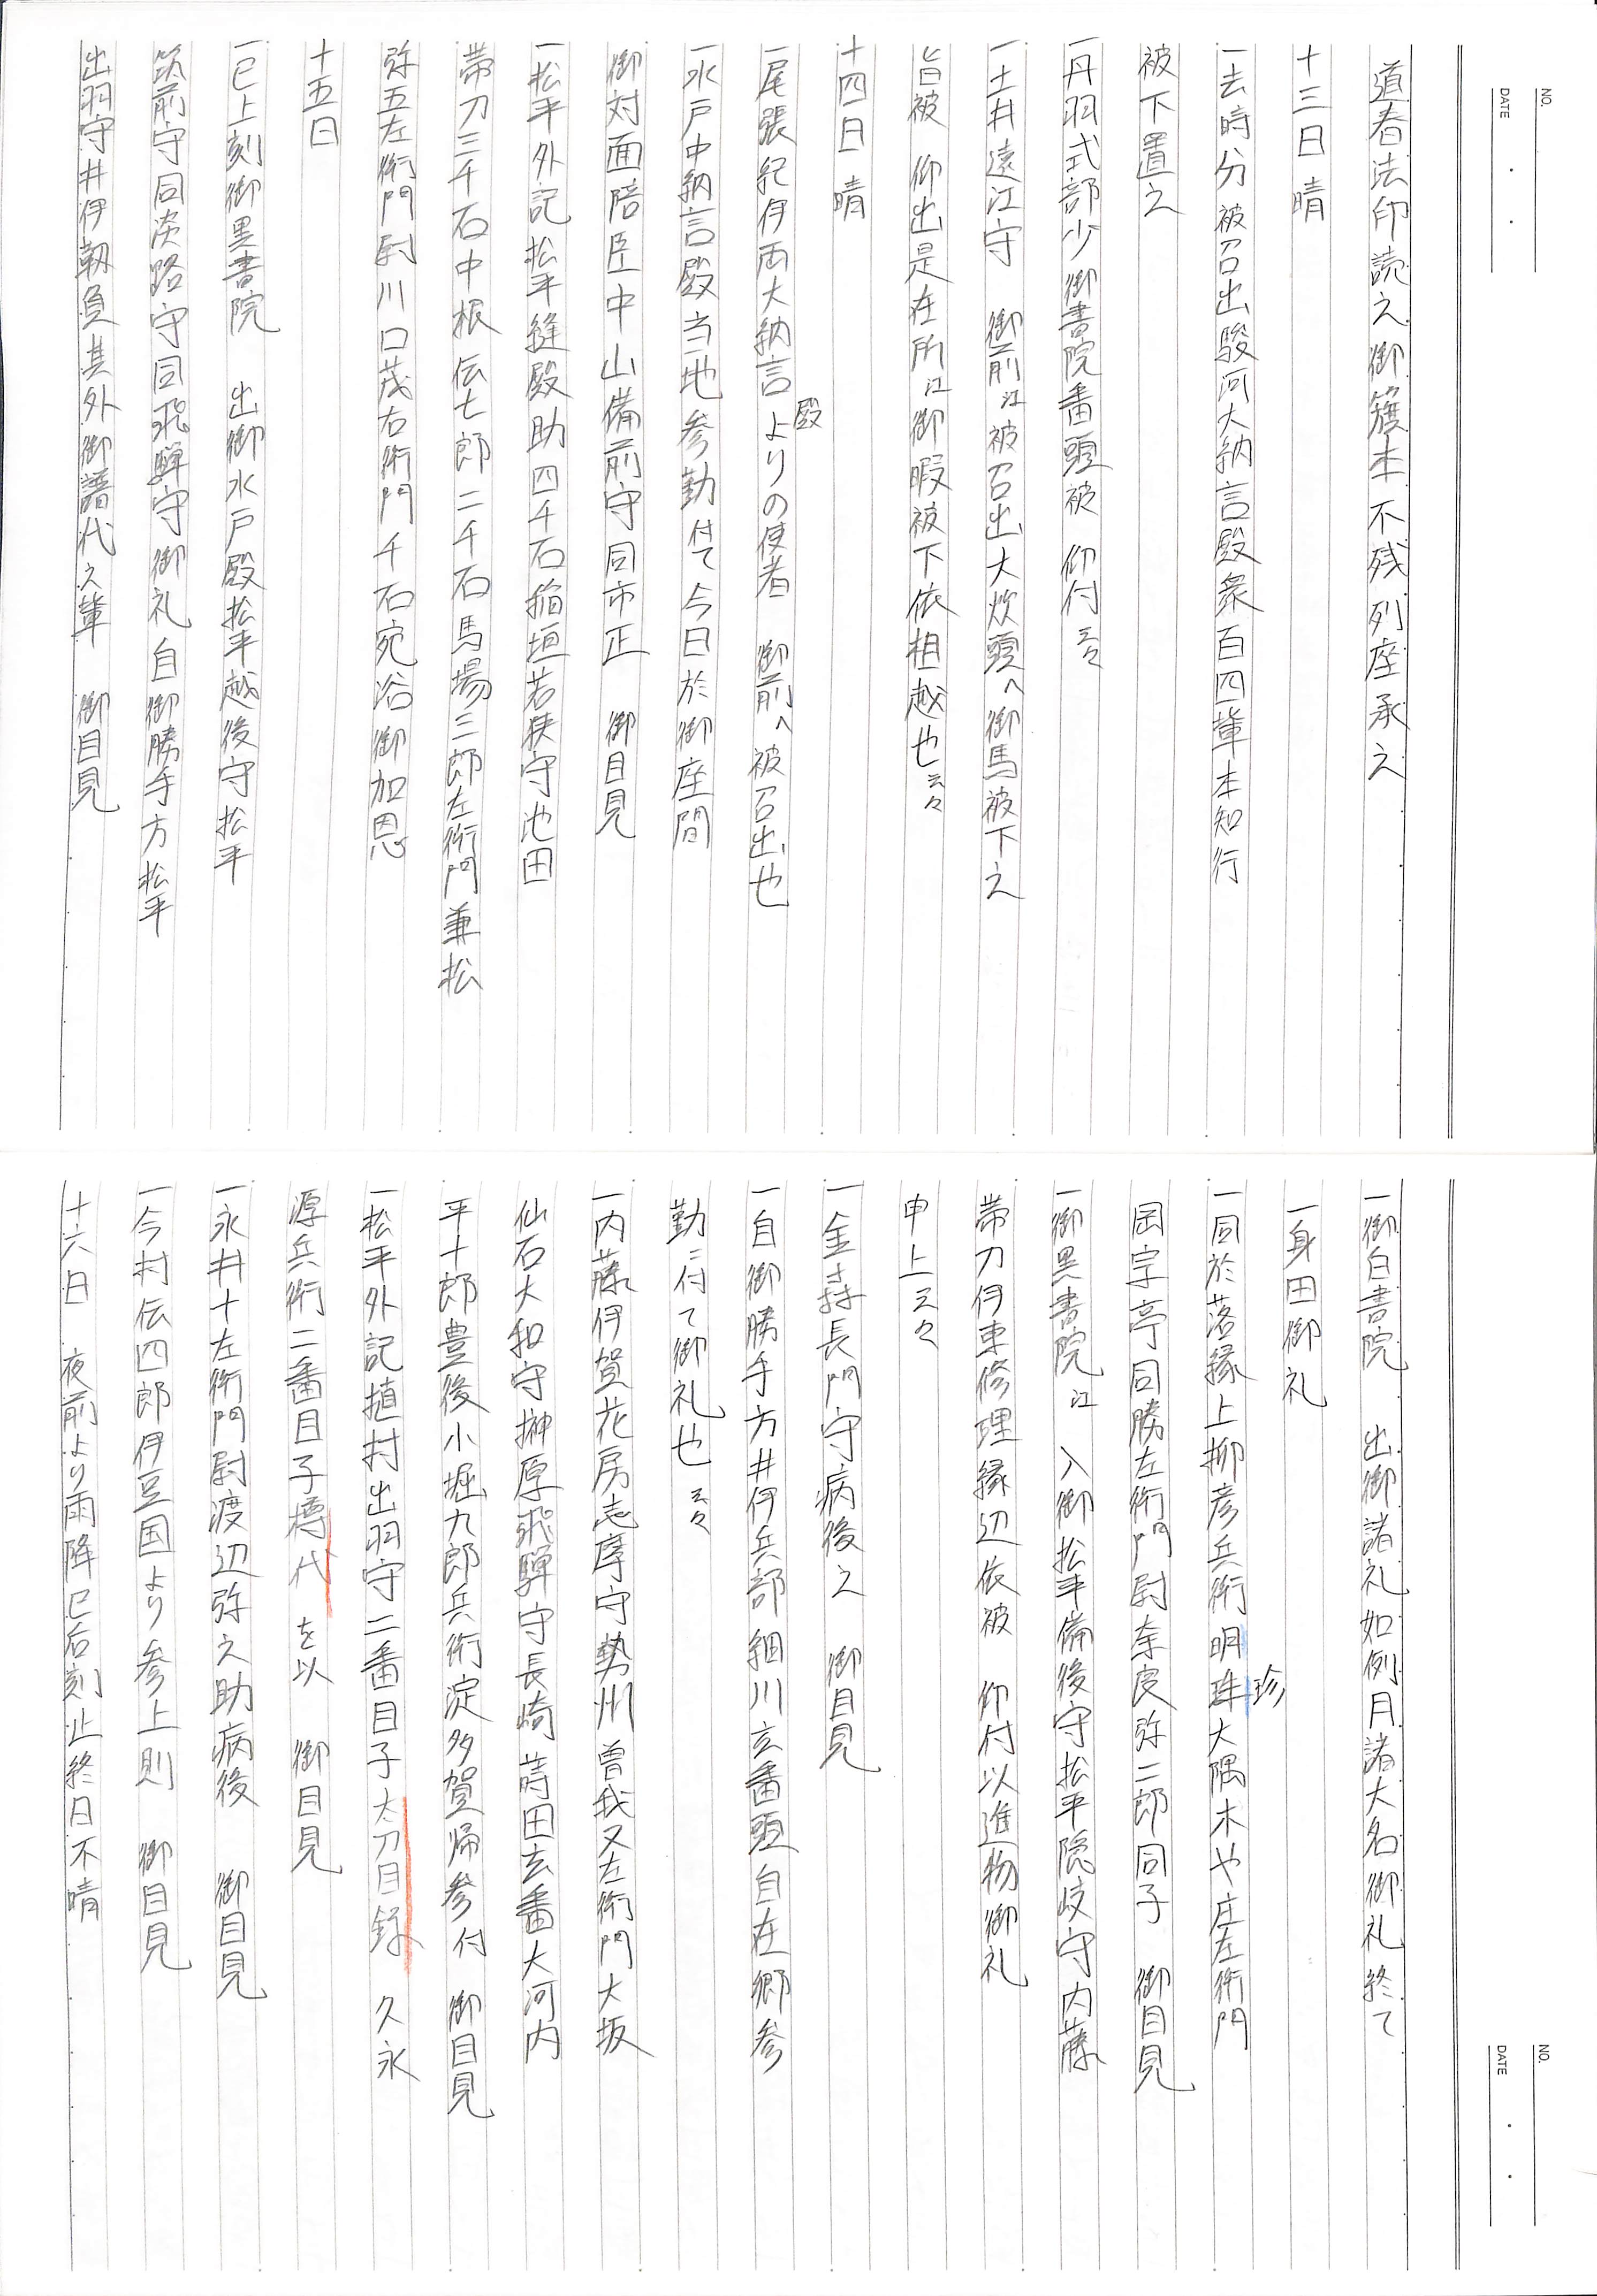 NO.
DATE
道春法印読之御籏本不残列座承之
十三日晴
一去時分被召出駿河大納言殿衆百四輩本知行
被下置之
一丹羽式部少御書院番頭被 仰付云々
一土井遠江守 御前江被召出大炊頭へ御馬被下之
旨被 仰出是在所江御暇被下依相越也云々
十四日晴
一尾張紀伊両大納言殿よりの使者 御前へ被召出也
一水戸中納言殿当地参勤付て今日於御座間
御対面陪臣中山備前守同市正 御目見
一松平外記松平縫殿助四千石稲垣若狭守池田
帯刀三千石中根伝七郎二千石馬場三郎左衛門兼松
弥五左衛門尉川口茂右衛門千石宛浴御加恩
十五日
一巳上刻御黒書院 出御水戸殿松平越後守松平
筑前守同淡路守同飛騨守御礼自御勝手方松平
出羽守井伊靱負其外御譜代之輩 御目見
NO.
DATE
一御白書院 出御諸礼如例月諸大名御礼終て
一身田御礼
一同於落縁上柳彦兵衛明珠珍大隅木や庄左衛門
岡宗亭同勝左衛門尉奈良弥二郎同子 御目見
一御黒書院江 入御松平備後守松平隠岐守内藤
帯刀伊東修理縁辺依被 仰付以進物御礼
申上云々
一金森長門守病後之 御目見
一自御勝手方井伊兵部細川玄番頭自在郷参
勤ニ付て御礼也云々
一内藤伊賀花房志摩守勢州曽我又左衛門大坂
仙石大和守榊原飛騨守長崎蒔田玄番大河内
平十郎豊後小堀九郎兵衛淀多賀帰参付 御目見
一松平外記植村出羽守二番目子太刀目録 久永
源兵衛二番目子樽代 を以 御目見
一永井十左衛門尉渡辺弥之助病後 御目見
一今村伝四郎伊豆国より参上則 御目見
十六日 夜前より雨降巳后刻止終日不晴